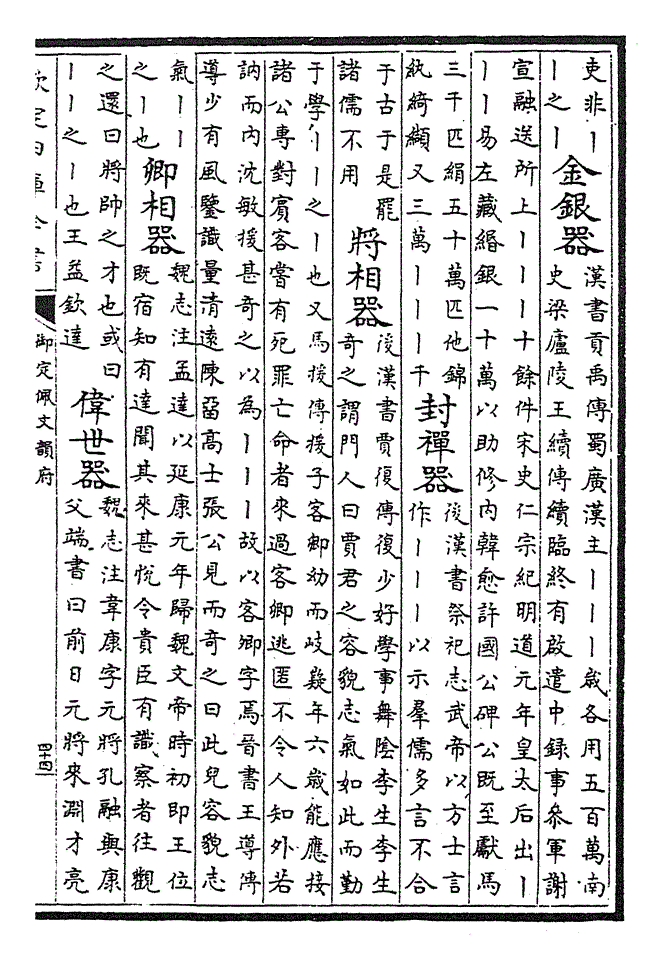 吏非〡
〡之〡
金銀器
漢書貢禹傳蜀廣漢主〡〡〡歲各用五百萬南
史梁廬陵王續傳續臨終有啟遣中録事叅軍謝
宣融送所上〡〡〡〡十餘件宋史仁宗紀明道元年皇太后出〡
〡〡易左藏緡銀一十萬以助修内韓愈許國公碑公既至獻馬
三千匹絹五十萬匹他錦
紈綺纈又三萬〡〡〡千
封禪器
後漢書祭祀志武帝以方士言
作〡〡〡以示羣儒多言不合
于古于是罷
諸儒不用
將相器
後漢書賈復傳復少好學事舞陰李生李生
奇之謂門人曰賈君之容貌志氣如此而勤
于學〡〡之〡也又馬援傳援子客卿幼而岐嶷年六歲能應接
諸公專對賓客嘗有死罪亡命者來過客卿逃匿不令人知外若
訥而内沈敏援甚奇之以為〡〡〡故以客卿字焉晉書王導傳
導少有風鑒識量清遠陳留高士張公見而奇之曰此兒容貌志
氣〡〡
之〡也
卿相器
魏志注孟達以延康元年歸魏文帝時初即王位
既宿知有達聞其來甚悅令貴臣有識察者往觀
之還曰將帥之才也或曰
〡〡之〡也王益欽達
偉世器
魏志注韋康字元將孔融與康
父端書曰前日元將來淵才亮
欽定四庫全書
御定佩文韻府
四十四